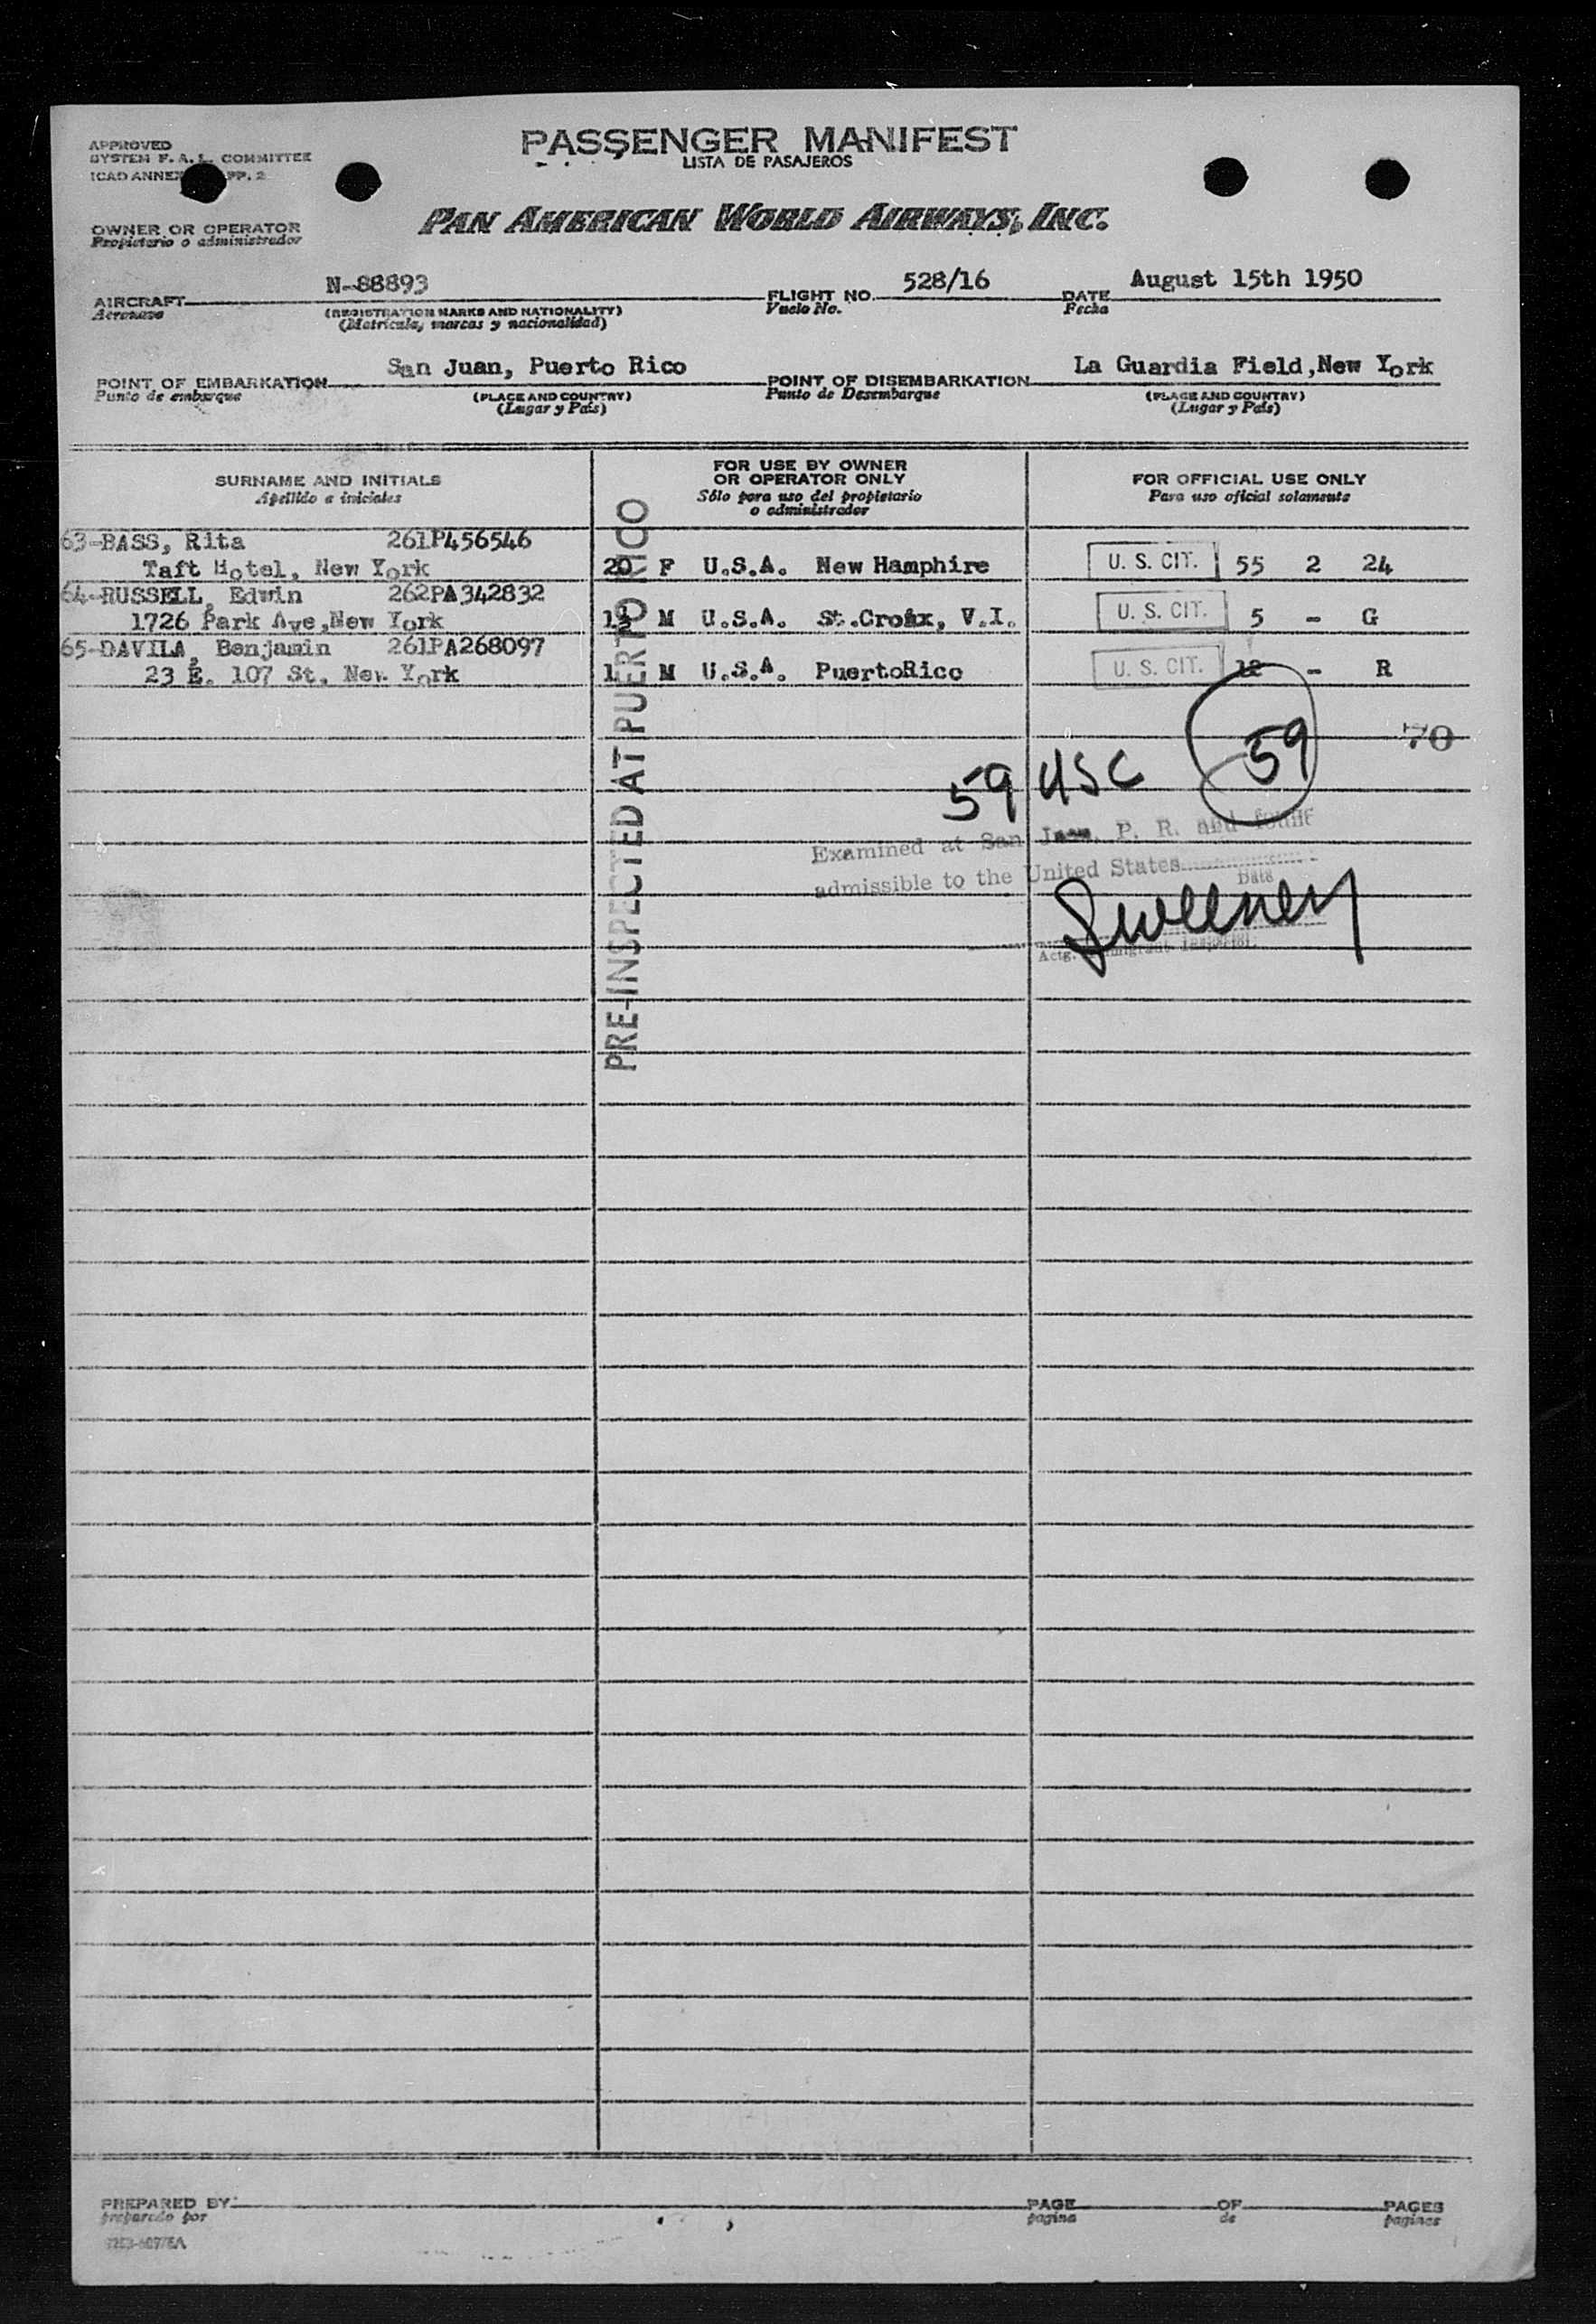 APPROVED
SYSTEM F. A. L. COMMITTEE
ICAO ANNEX PP. 2
PASSENGER MANIFEST
LISTA DE PASAJEROS
PAN AMERICAN WORLD AIRWAYS, INC.
OWNER OR OPERATOR
Propietario o administrador
AIRCRAFT N-88893 FLIGHT NO. 528/16 DATE August 15th 1950
Aeronave (REGISTRATION MARKS AND NATIONALITY) Vuelo No. Fecha
(Matrícula, marcas y nacionalidad)
POINT OF EMBARKATION San Juan, Puerto Rico POINT OF DISEMBARKATION La Guardia Field,New York
Punto de embarque (PLACE AND COUNTRY) Punto de Desembarque (PLACE AND COUNTRY)
(Lugar y País) (Lugar y País)
SURNAME AND INITIALS FOR USE BY OWNER OR OPERATOR ONLY FOR OFFICIAL USE ONLY
Apellido e iniciales Sólo para uso del propietario o administrador Para uso oficial solamente
63-BASS, Rita 261P456546
Taft Hotel, New York 20 F U.S.A. New Hamphire U. S. CIT. 55 2 24
64-RUSSELL, Edwin 262PA342832
1726 Park Ave,New York M U.S.A. St.Croix, V.I. U. S. CIT. 5 - G
65-DAVILA, Benjamin 261PA268097
23 E. 107 St. New York M U.S.A. PuertoRico U. S. CIT. 12 - R
PRE-INSPECTED AT PUERTO RICO
59 70
59 USC
Examined at San Juan, P. R. and found
admissible to the United States
Date
Sweeney
Actg. Immigrant Inspector
PREPARED BY PAGE OF PAGES
preparado por pagina de paginas